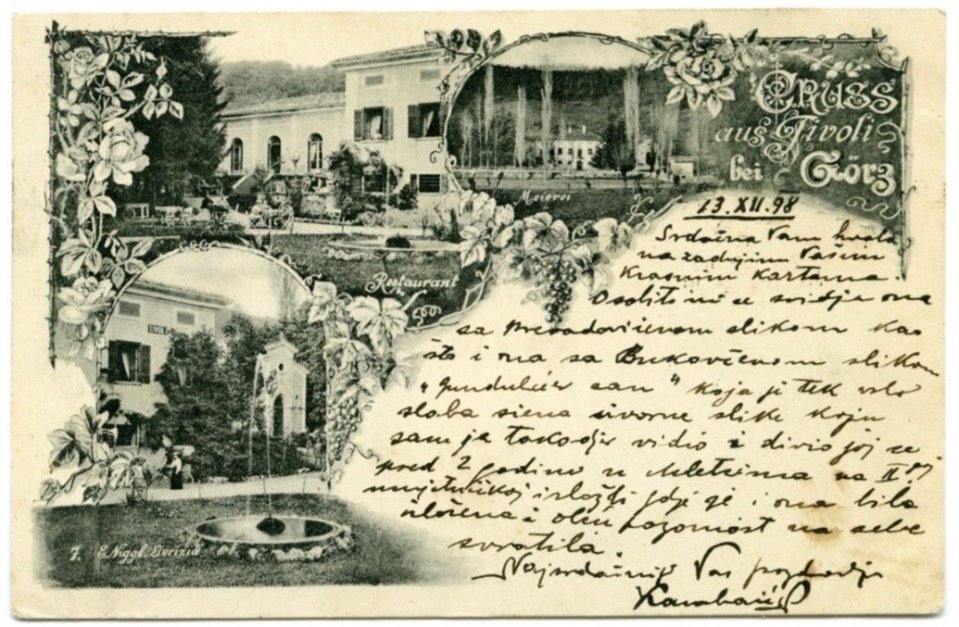 GRUSS
aus Tivoli
bei Görz
Meierei
Restaurant
TIVOLI
7. E. Niggl. Gorizia
13. XII. 98
Srdačna Vam hvala
na zadnjim Vašim
Krasnim kartama.
Osobito mi se svidja ona
sa slikom kao
što i ona sa Bukovčevom slikom
"Gundulićev san" koja je tek vrlo
slaba siena izvorne slike koju
sam ja takodjer vidio i divio joj se
pred 2 godine u Mletcima na II
umjetničkoj izložbi gdje je i ona bila
izložena i obću pozornost na sebe
svratila.
Najsrdačnije Vas pozdravlja